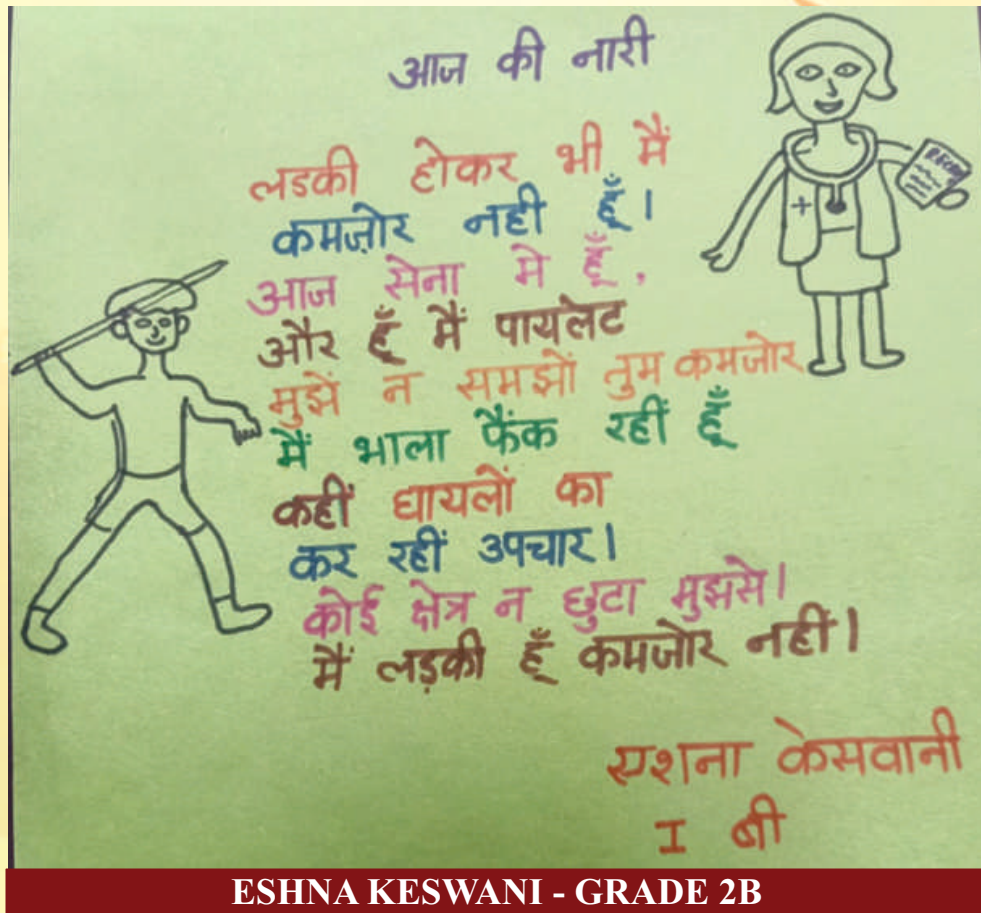 आज की नारी
लडकी होकर भी मैं
कमज़ोर नही हूँ।
आज सेना मे हूँ,
और हूँ मैं पायलेट
मुझें न समझों तुम कमजोर
मैं भाला फैंक रहीं हूँ
कहीं घायलों का
कर रहीं उपचार।
कोई क्षेत्र न छुटा मुझसे।
मैं लड़की हूँ कमजोर नहीं।
एशना केसवानी
I बी
ESHNA KESWANI - GRADE 2B